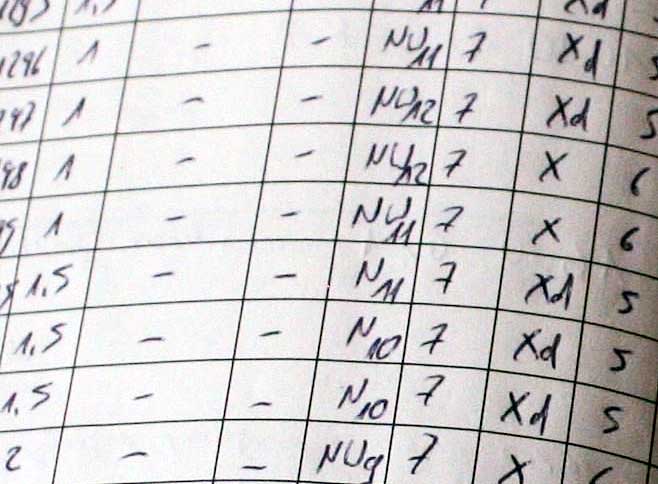 1296 1 - - NU11 7 Xd 5
297 1 - - NU12 7 Xd 5
98 1 - - NU12 7 X 6
1 - - NU11 7 X 6
1.5 - - N11 7 Xd 5
1.5 - - N10 7 Xd 5
1.5 - - N10 7 Xd 5
2 - - NU9 7 X